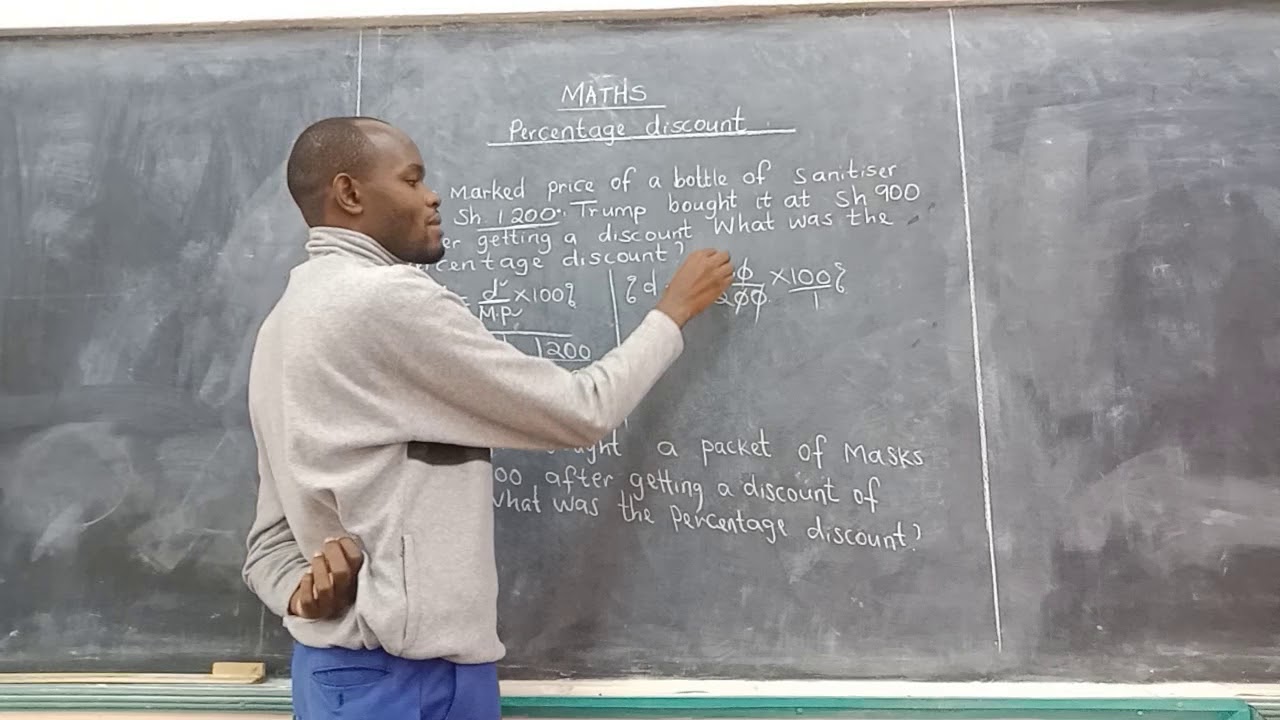 MATHS
Percentage discount
Marked price of a bottle of Sanitiser
Sh. 1200. Trump bought it at Sh 900
getting a discount What was the
discount?
= d × 100%
M.P
1200
% d
× 100%
1
a packet of Masks
00 after getting a discount of
What was the percentage discount?